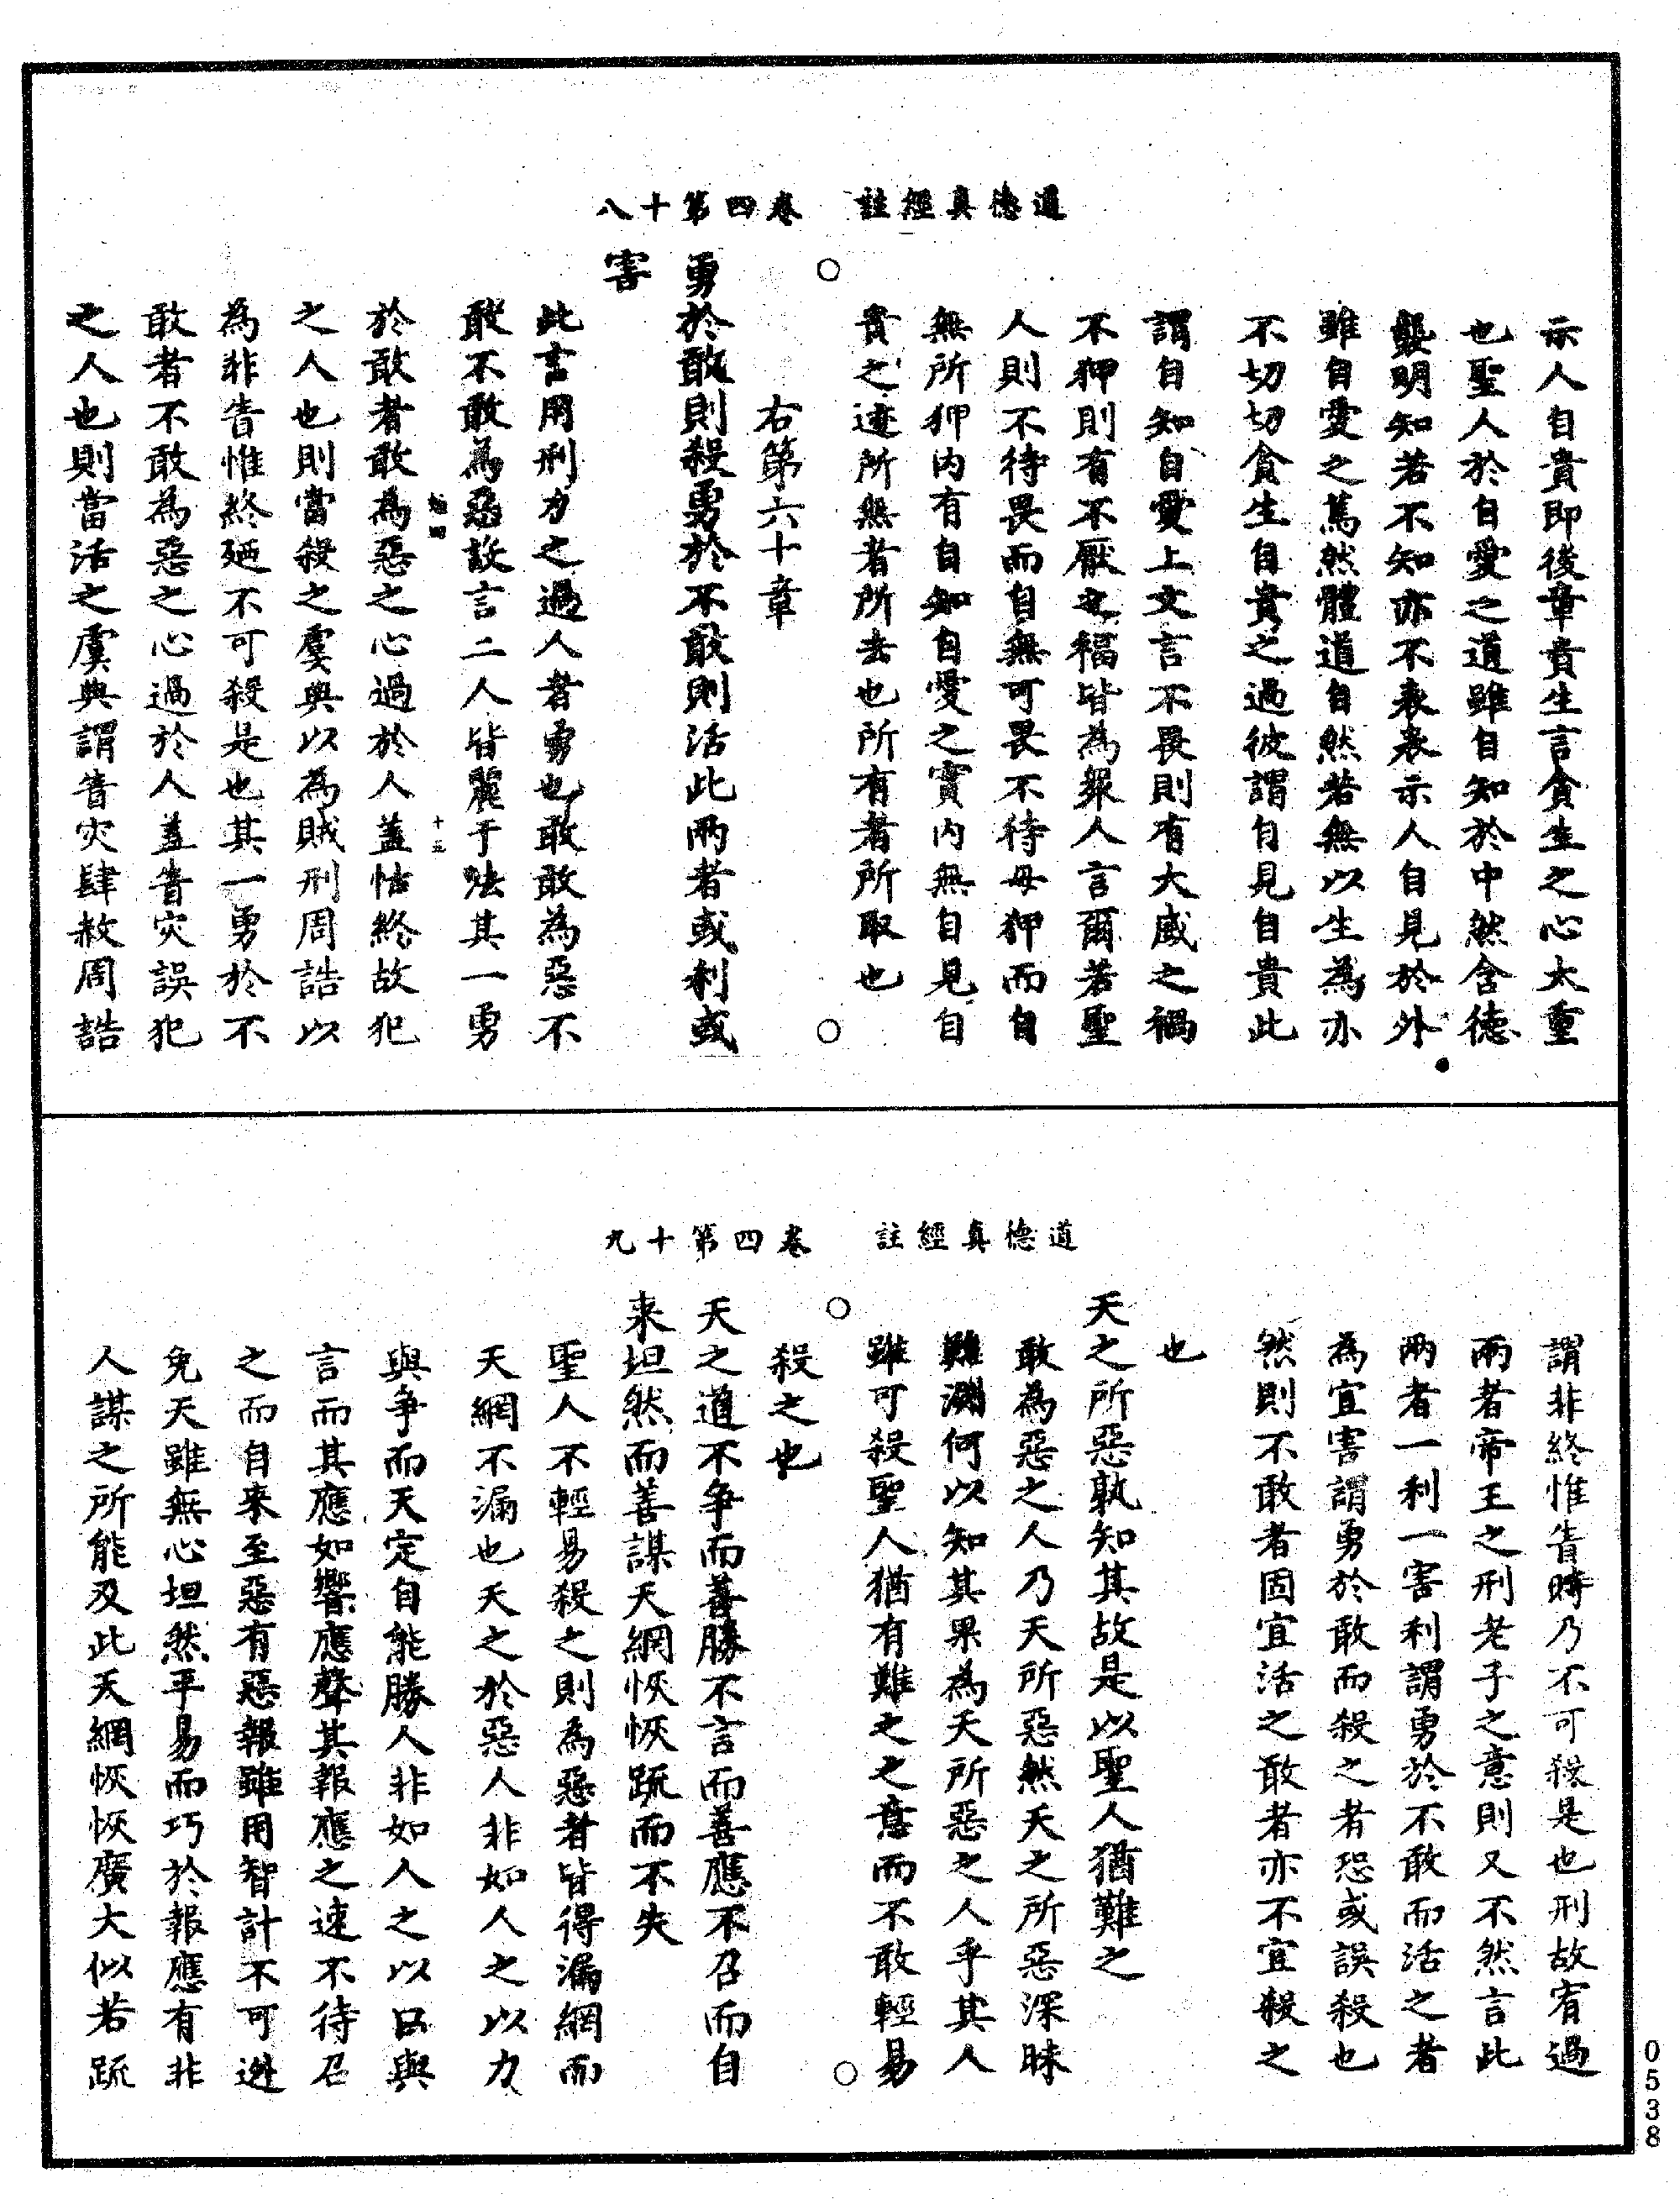 道德真經註　卷四第十八
示人自貴即後章貴生言貪生之心太重
也聖人於自愛之道雖自知於中然含德
襲明知若不知亦不表表示人自見於外
雖自愛之篤然體道自然若無以生為亦
不切切貪生自貴之過彼謂自見自貴此
謂自知自愛上文言不畏則有大威之禍
不狎則有不厭之福皆為衆人言爾若聖
人則不待畏而自無可畏不待毋狎而自
無所狎內有自知自愛之實內無自見自
貴之迹所無者所去也所有者所取也
右第六十章
勇於敢則殺勇於不敢則活此兩者或利或
害
此言用刑力之過人者勇也敢敢為惡不
敢不敢為惡故言二人皆麗于法其一勇
於敢者敢為惡之心過於人蓋怙終故犯
之人也則當殺之虞與以為賊刑周誥以
為非眚惟終廼不可殺是也其一勇於不
敢者不敢為惡之心過於人蓋眚災誤犯
之人也則當活之虞典謂眚災肆赦周誥
道德真經註　卷四第十九
謂非終惟眚時乃不可殺是也刑故宥過
兩者帝王之刑老子之意則又不然言此
兩者一利一害利謂勇於不敢而活之者
為宜害謂勇於敢而殺之者恐或誤殺也
然則不敢者固宜活之敢者亦不宜殺之
也
天之所惡孰知其故是以聖人猶難之
敢為惡之人乃天所惡然天之所惡深昧
難測何以知其果為天所惡之人乎其人
雖可殺聖人猶有難之之意而不敢輕易
殺之也
天之道不争而善勝不言而善應不召而自
来坦然而善謀天網恢恢踈而不失
聖人不輕易殺之則為惡者皆得漏網而
天網不漏也天之於惡人非如人之以力
與争而天定自能勝人非如人之以口與
言而其應如響應聲其報應之速不待召
之而自來至惡有惡報雖用智計不可逃
免天雖無心坦然平易而巧於報應有非
人謀之所能及此天網恢恢廣大似若踈
0538